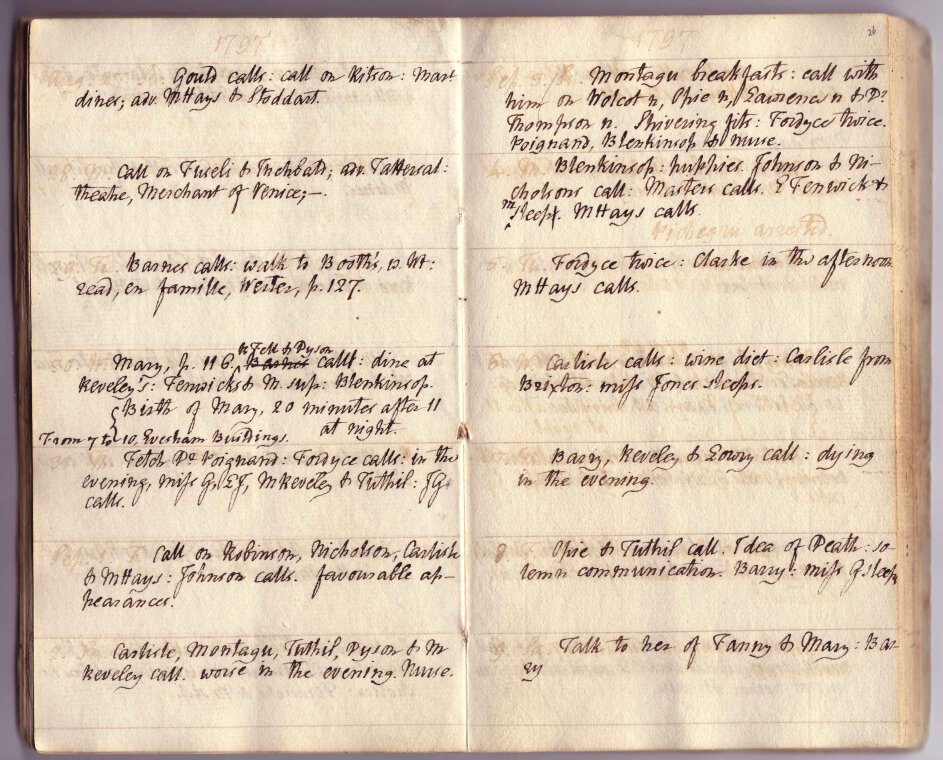 1797
Gould calls: call on Ritson: Mart
dines; adv. MHays & Stoddart.
call on Fuseli & Inchbald; adv. Tattersal:
theatre, Merchant of Venice;—
Barnes calls: walk to Booth's, n. Wt:
read, en famille, Werter, p. 127.
R Fell & Dyson
Mary, p. 116. Barnes call: dine at
Reveley's: Fenwicks & M. sup: Blenkinsop.
Birth of Mary, 20 minutes after 11
at night.
From 7 to 10, Evesham Buildings.
Fetch Dr Poignand: Fordyce calls: in the
evening, miss G, EJ, MReveley & Tuthil: JG
calls.
Call on Robinson, Nicholson, Carlisle
& MHays: Johnson calls. favourable ap-
pearances.
Carlisle, Montagu, Tuthil, Dyson & M
Reveley call. worse in the evening. Nurse.
1797
26
Montagu breakfasts: call with
him on Wolcot n, Opie n, Lawrence n & Dr
Thompson n. Shivering fits: Fordyce twice.
Poignand, Blenkinsop & Nurse.
4.
Blenkinsop: puppies. Johnson & Ni-
cholsons call: Masters calls. E Fenwick &
m sleep. MHays calls.
Pichegru arrested.
5. Tu.
Fordyce twice: Clarke in the afternoon
MHays calls.
6.
Carlisle calls: wine diet: Carlisle from
Brixton: miss Jones sleeps.
Barry, Reveley & Lowry call: dying
in the evening.
8
Opie & Tuthil call. Idea of Death: so-
lemn communication. Barry: miss G sleeps
9.
Talk to her of Fanny & Mary: Bar-
ry